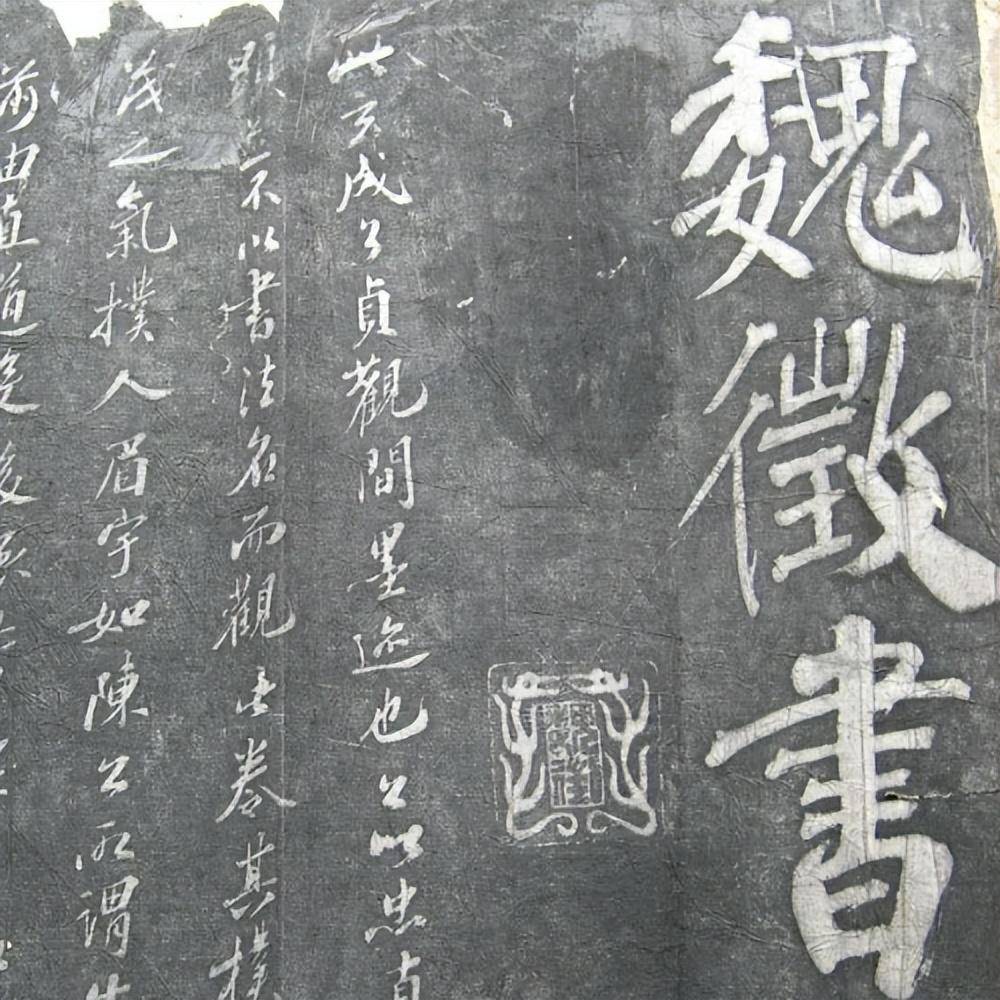 魏徵書
此玄成公貞觀間墨迹也公以忠直
顯不以書法名而觀此卷其樸
茂之氣撲人眉宇如陳公所謂
前由直道